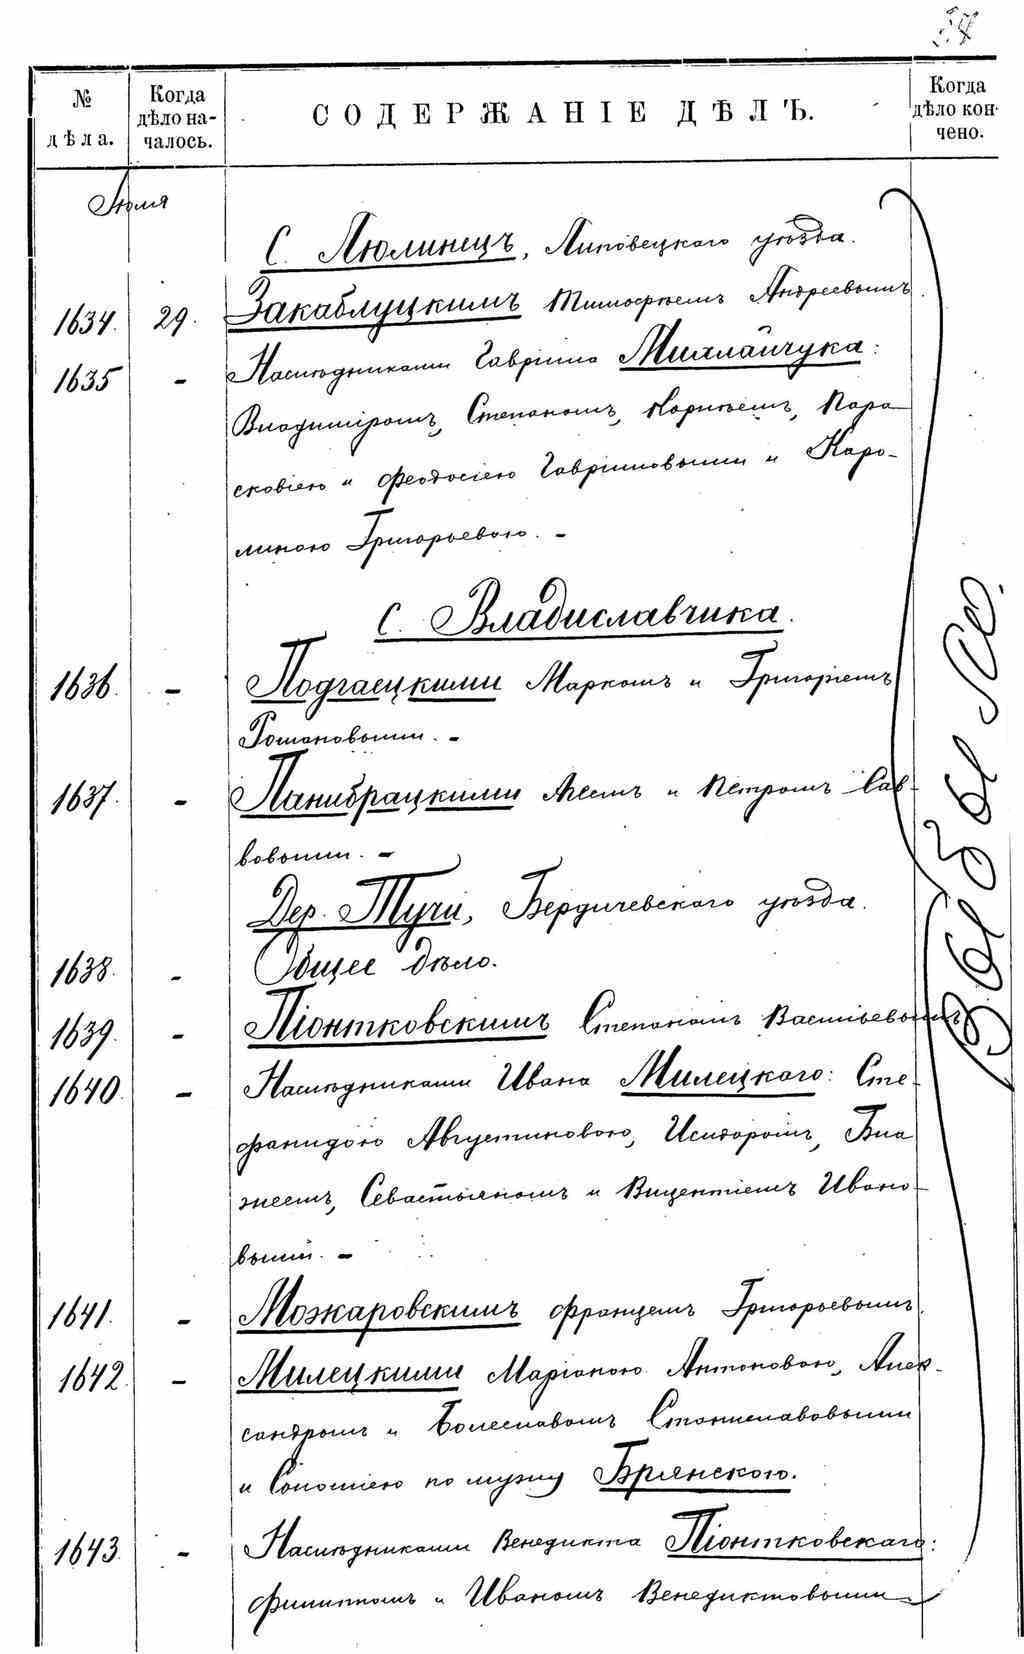 34
№ дѣла.
Когда дѣло началось.
СОДЕРЖАНІЕ ДѢЛЪ.
Когда дѣло кончено.
Іюля
С. Люлинецъ, Липовецкаго уѣзда.
1634. 29. Закаблуцкимъ Тимофѣемъ Андреевымъ.
1635 - Наслѣдниками Гавріила Михлайчука:
Владиміромъ, Степаномъ, Корнѣемъ, Пара-
сковіею и Феодосіею Гавріиловыми и Каро-
линою Григорьевою. -
С. Владиславчика.
1636. - Подгаецкими Маркомъ и Григоріемъ
Романовыми. -
1637. - Панибрацкими Алеемъ и Петромъ Сав-
вовыми. -
Дер. Тучи, Бердичевскаго уѣзда.
1638. - Общее дѣло.
1639. - Піонтковскимъ Степаномъ Васильевымъ
1640. - Наслѣдниками Ивана Милецкаго: Сте-
фанидою Августиновою, Исидоромъ, Бла
жеемъ, Севастьяномъ и Викентіемъ Ивано-
выми. -
1641. - Можаровскимъ Францемъ Григорьевымъ.
1642. - Милецкими Маріаною Антоновою, Алек-
сандромъ и Болеславомъ Станиславовыми
и Соломіею по мужу Брянскою.
1643. - Наслѣдниками Венедикта Піонтковскаго:
Филиппомъ и Иваномъ Венедиктовыми
Выбыло.